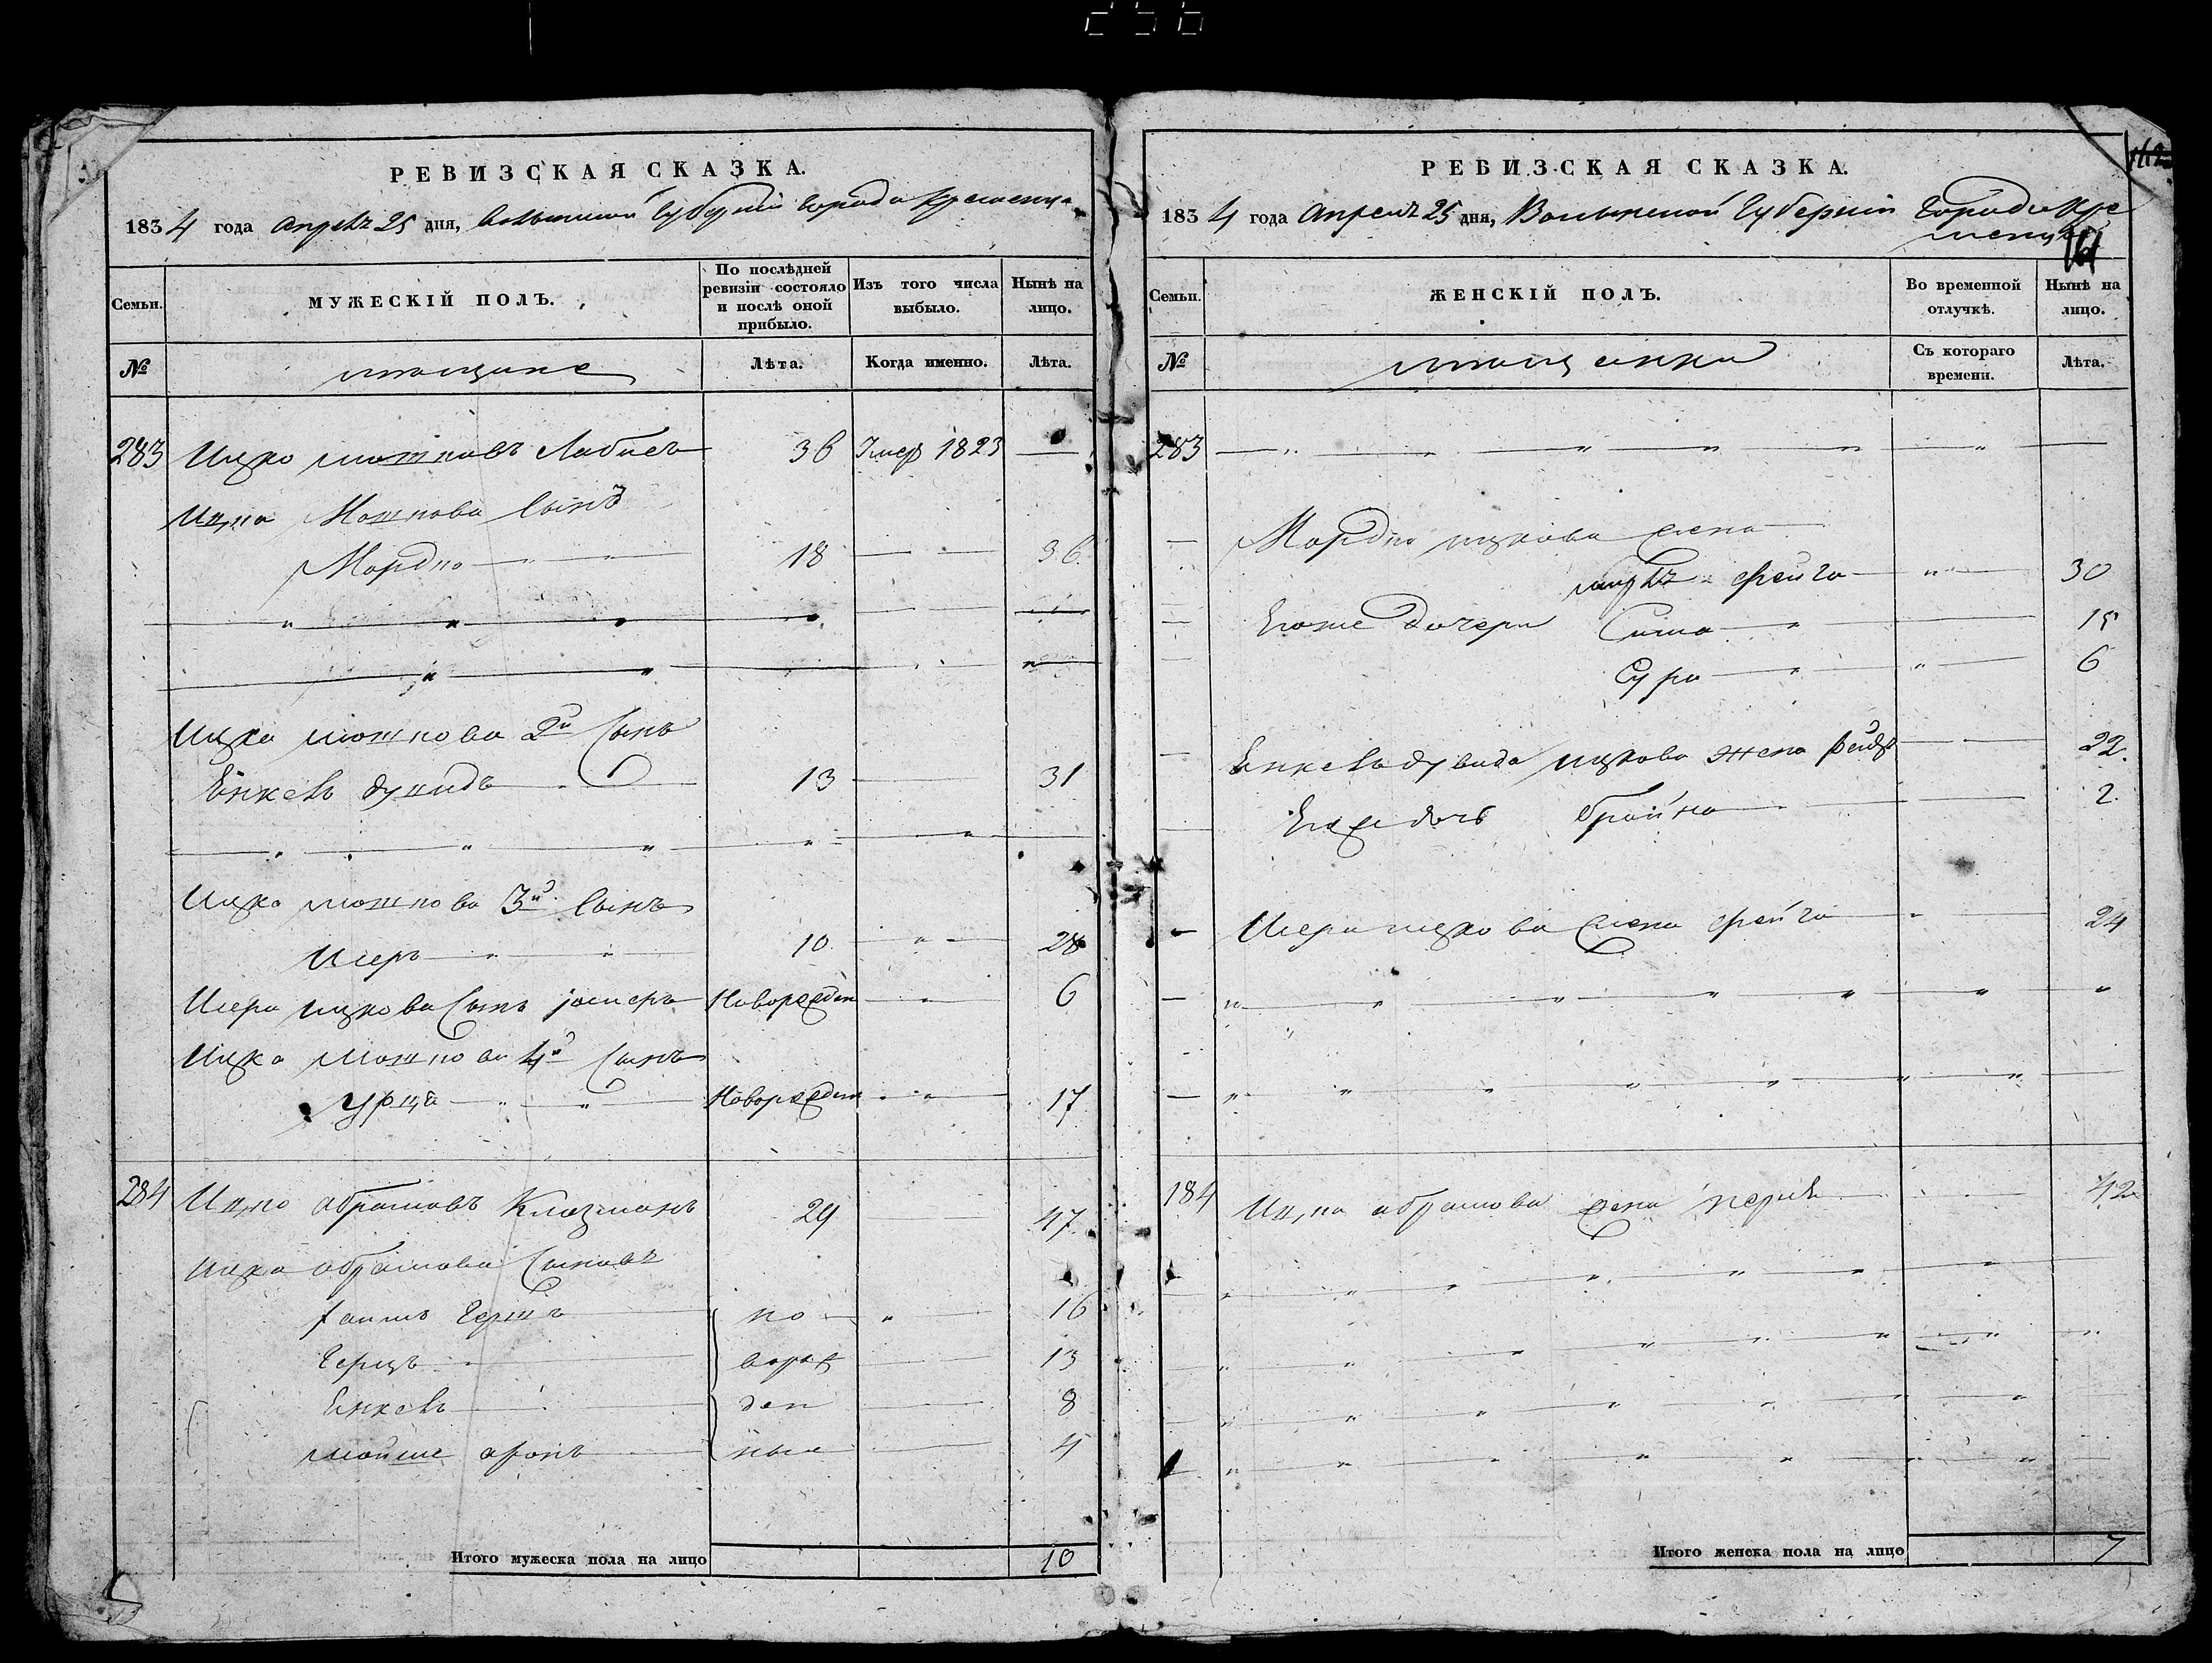 РЕВИЗСКАЯ СКАЗКА.
1834 года апреля 25 дня, Волынской Губернии города Кременца
Семьи.
МУЖЕСКІЙ ПОЛЪ.
По послѣдней ревизіи состояло и послѣ оной прибыло.
Изъ того числа выбыло.
Нынѣ на лицо.
№
мещане
Лѣта.
Когда именно.
Лѣта.
283 Ицко Мошковъ 36 Умер 1823 —
Ицка Мошкова сынъ
Мордко 18 36
Ицка Мошкова 2й сынъ
Енкель Дувидъ 13 31
Ицка Мошкова 3й сынъ
Шеръ 10 28
Шера Ицкова сынъ Новорожден 6
Ицка Мошкова 4й сынъ
Новорожден 17
284 Ицко Абрамовъ 29 47
Ицка Абрамова сыновья
Гершъ но 16
Герцъворож 13
Енкель ден 8
Мойше Аронъ ные 4
Итого мужеска пола на лицо 10
РЕВИЗСКАЯ СКАЗКА.
1834 года Апреля 25 дня, Волынской Губернии Города Кременца
161
Семьи.
ЖЕНСКІЙ ПОЛЪ.
Во временной отлучкѣ.
Нынѣ на лицо.
№
мещанки
Съ котораго времени.
Лѣта.
283
Мордка Ицкова жена
Фейга 30
Егоже дочери Сима 15
Сура 6
Енкеля Дувида Ицкова жена 22.
Его дочь Брайна 2.
Шера Ицкова жена Фейга 24
184 Ицка Абрамова жена Перля 42
Итого женска пола на лицо 7